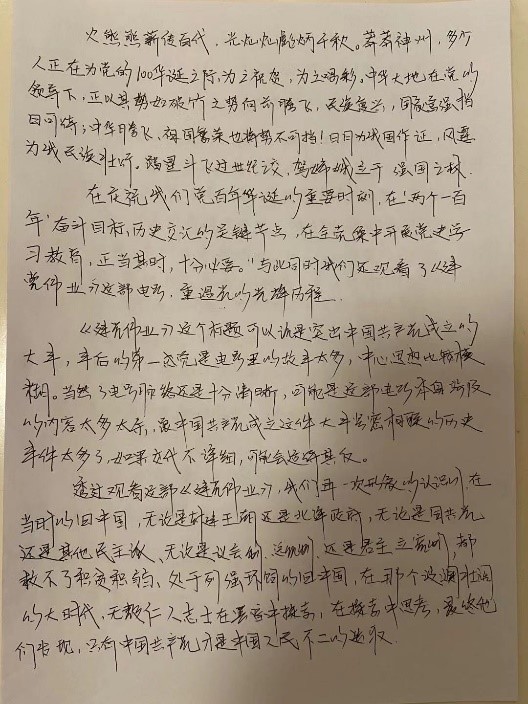 火熊熊薪传百代，光灿灿彪炳千秋。莽莽神州，多少
人正在为党的100华诞之际，为之祝贺，为之喝彩。中华大地在党的
领导下，正以其势如破竹之势向前腾飞，民族复兴，国家富强指
日可待；中华腾飞，祖国繁荣也将势不可挡！日月为我国作证，风云
为我民族壮行。踏星斗飞过世纪，驾婵娥立于强国之林。
在庆祝我们党百年华诞的重要时刻，在“两个一百
年”奋斗目标历史交汇的关键节点，在全党集中开展党史学
习教育，正当其时，十分必要。”与此同时我们还观看了《建
党伟业》这部电影，重温党的光辉历程。
《建党伟业》这个标题可以说是突出中国共产党成立的
大事，事后的第一感觉是电影里的故事太多，中心思想比较模
糊。当然了电影脉络还是十分清晰，可能是这部电影本身涉及
的内容太多太杂，与中国共产党成立这件大事紧密相联的历史
事件太多了，如果交代不详细，可能会适得其反。
通过观看这部《建党伟业》，我们再一次深刻的认识到，在
当时的旧中国，无论是封建王朝还是北洋政府，无论是国共党
还是其他民主派、无论是议会制、总统制、还是君主立宪制，都
救不了积贫积弱、处于列强环伺的旧中国，在那个波澜壮阔
的大时代，无数仁人志士在黑暗中摸索，在摸索中思考，最终他
们发现，只有中国共产党才是中国人民不二的选取。